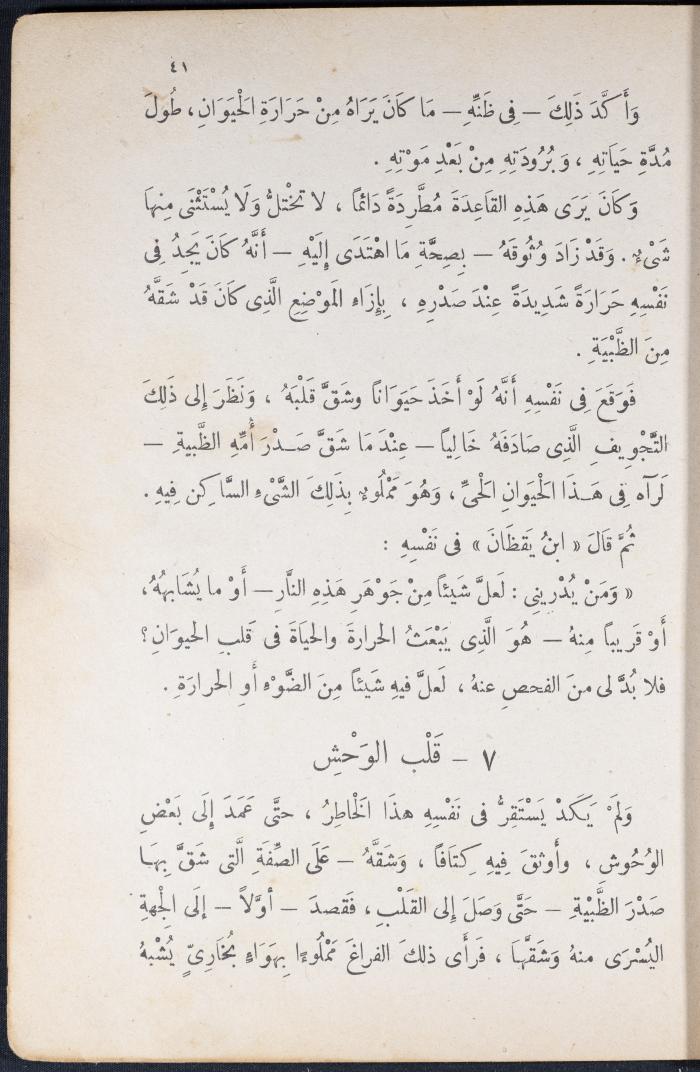 ٤١
وَأَكَّدَ ذَلِكَ – فِى ظَنِّهِ – مَا كَانَ يَرَاهُ مِنْ حَرَارَةِ الْحَيَوَانِ، طُولَ
مُدَّةِ حَيَاتِهِ ، وَبُرُودَتِهِ مِنْ بَعْدِ مَوْتِهِ .
وَكَانَ يَرَى هَذِهِ القَاعِدَةَ مُطَّرِدَةً دَائمًا ، لا تَخْتَلُّ وَلَا يُسْتَثْنَى مِنهَا
شَىْءٌ . وَقَدْ زَادَ وُثُوقَهُ – بِصِحَّةِ مَا اهْتَدَى إِلَيْهِ – أَنَّهُ كَانَ يَجِدُ فِى
نَفْسِهِ حَرَارَةً شَدِيدَةً عِنْدَ صَدْرِهِ ، بِإِزَاءِ المَوْضِعِ الَّذِى كَانَ قَدْ شَقَّهُ
مِنَ الظَّبْيَةِ .
فَوَقَعَ فِى نَفْسِهِ أَنَّهُ لَوْ أَخَذَ حَيَوَانًا وشَقَّ قَلْبَهُ ، وَنَظَرَ إِلى ذَلِكَ
التَّجْوِيفِ الَّذِى صَادَفَهُ خَالِيًا – عِنْدَ مَا شَقَّ صَدْرَ أُمِّهِ الظَّبيةِ –
لَرَآه فِى هَذَا الْحَيَوانِ الْحَىِّ ، وَهُوَ مَمْلُوءٌ بِذَلِكَ الشَّىْءِ السَّاكِن فِيهِ .
ثُمَّ قَالَ « ابنُ يَقظَانَ » فى نَفْسِهِ :
« وَمَنْ يُدْرِينِى : لَعلَّ شَيئًا مِنْ جَوْهَرِ هَذِهِ النَّارِ – أَوْ ما يُشَابهُهُ،
أَوْ قَرِيبًا مِنهُ – هُوَ الَّذِى يَبْعَثُ الحرارةَ والحيَاةَ فى قَلبِ الحيوَانِ؟
فلا بُدَّ لى منَ الفحصِ عنهُ ، لَعلَّ فيهِ شَيئًا مِنَ الضَّوْءِ أَوِ الحرارَةِ .
٧ – قَلْب الوَحْشِ
وَلَمْ يَكَدْ يَسْتَقِرُّ فى نَفْسِهِ هذَا الْخَاطِرُ ، حتَّى عَمَدَ إِلَى بَعْضِ
الوُحُوشِ ، وأَوثقَ فِيهِ كِتَافًا ، وَشَقَّهُ – عَلَى الصِّفَةِ الَّتى شَقَّ بِهَا
صَدْرَ الظَّبْيةِ – حَتَّى وَصَلَ إِلى القَلْبِ ، فَقصدَ – أَوَّلاً – إلَى الْجِهةِ
اليُسْرَى منهُ وَشَقَّهَا ، فَرأَى ذلكَ الفراغَ مَمْلُوءًا بِهَوَاءٍ بُخَارِىّ يُشْبهُ